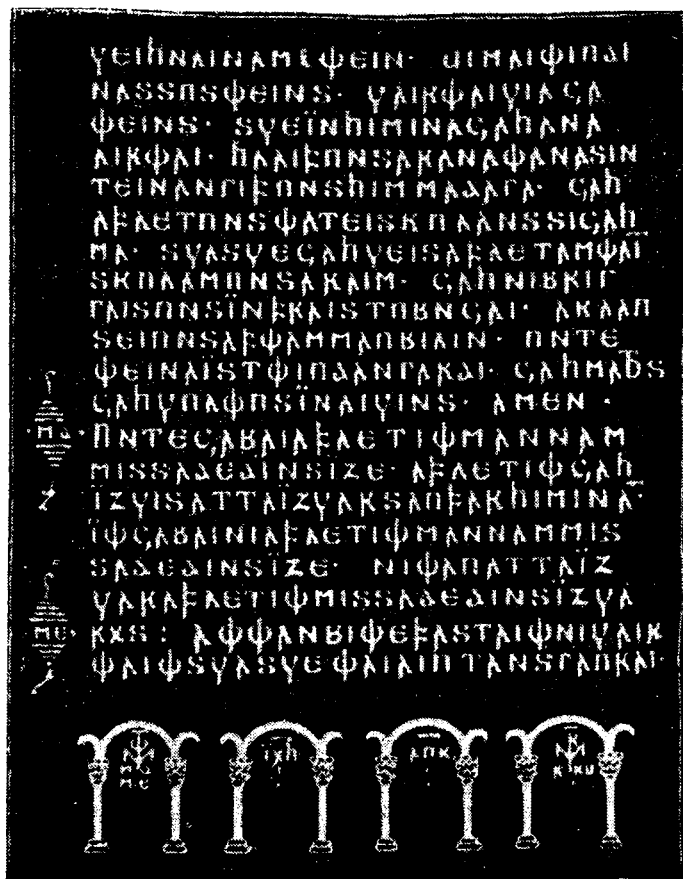 𐍅𐌴𐌹𐌷𐌽𐌰𐌹𐌽𐌰𐌼𐍉𐌸𐌴𐌹𐌽· 𐌵𐌹𐌼𐌰𐌹𐌸𐌹𐌿𐌳𐌹
𐌽𐌰𐍃𐍃𐌿𐍃𐌸𐌴𐌹𐌽𐍃· 𐍅𐌰𐌹𐍂𐌸𐌰𐌹𐍅𐌹𐌻𐌾𐌰
𐌸𐌴𐌹𐌽𐍃· 𐍃𐍅𐌴𐌹̈𐌽𐌷𐌹𐌼𐌹𐌽𐌰𐌾𐌰𐌷𐌰𐌽𐌰
𐌰𐌹𐍂𐌸𐌰𐌹· 𐌷𐌻𐌰𐌹𐍆𐌿𐌽𐍃𐌰𐍂𐌰𐌽𐌰𐌸𐌰𐌽𐌰𐍃𐌹𐌽
𐍄𐌴𐌹𐌽𐌰𐌽𐌲𐌹𐍆𐌿𐌽𐍃𐌷𐌹𐌼𐌼𐌰𐌳𐌰𐌲𐌰· 𐌾𐌰𐌷
𐌰𐍆𐌻𐌴𐍄𐌿𐌽𐍃𐌸𐌰𐍄𐌴𐌹𐍃𐌺𐌿𐌻𐌰𐌽𐍃𐍃𐌹𐌾𐌰𐌹
𐌼𐌰· 𐍃𐍅𐌰𐍃𐍅𐌴𐌾𐌰𐌷𐍅𐌴𐌹𐍃𐌰𐍆𐌻𐌴𐍄𐌰𐌼𐌸𐌰𐌹̅
𐍃𐌺𐌿𐌻𐌰𐌼𐌿𐌽𐍃𐌰𐍂𐌰𐌹𐌼· 𐌾𐌰𐌷𐌽𐌹𐌱𐍂𐌹𐌲
𐌲𐌰𐌹𐍃𐌿𐌽𐍃𐌹̈𐌽𐍆𐍂𐌰𐌹𐍃𐍄𐌿𐌱𐌽𐌾𐌰𐌹· 𐌰𐌺𐌻𐌰𐌿
𐍃𐌴𐌹𐌿𐌽𐍃𐌰𐍆𐌸𐌰𐌼𐌼𐌰𐌿𐌱𐌹𐌻𐌹𐌽· 𐌿𐌽𐍄𐌴
𐌸𐌴𐌹𐌽𐌰𐌹̈𐍃𐍄𐌸𐌹𐌿𐌳𐌰𐌽𐌲𐌰𐍂𐌳𐌹· 𐌾𐌰𐌷𐌼𐌰𐌷𐍄𐍃
𐌾𐌰𐌷𐍅𐌿𐌻𐌸𐌿𐍃𐌹̈𐌽𐌰𐌹𐍅𐌹𐌽𐍃· 𐌰𐌼𐌴𐌽·
𐌼𐌳
𐌿𐌽𐍄𐌴𐌾𐌰𐌱𐌰𐌹𐌰𐍆𐌻𐌴𐍄𐌹𐌸𐌼𐌰𐌽𐌽𐌰𐌼
𐌼𐌹𐍃𐍃𐌰𐌳𐌴𐌳𐌹𐌽𐍃𐌹𐌶𐌴· 𐌰𐍆𐌻𐌴𐍄𐌹𐌸𐌾𐌰𐌷
𐌹̈𐌶𐍅𐌹𐍃𐌰𐍄𐍄𐌰𐌹̈𐌶𐍅𐌰𐍂𐍃𐌰𐌿𐍆𐌰𐍂𐌷𐌹𐌼𐌹𐌽𐌰̅·
𐌹̈𐌸𐌾𐌰𐌱𐌰𐌹𐌽𐌹𐌰𐍆𐌻𐌴𐍄𐌹𐌸𐌼𐌰𐌽𐌽𐌰𐌼𐌼𐌹𐍃
𐍃𐌰𐌳𐌴𐌳𐌹𐌽𐍃𐌹̈𐌶𐌴· 𐌽𐌹𐌸𐌰𐌿𐌰𐍄𐍄𐌰𐌹̈𐌶
𐍅𐌰𐍂𐌰𐍆𐌻𐌴𐍄𐌹𐌸𐌼𐌹𐍃𐍃𐌰𐌳𐌴𐌳𐌹𐌽𐍃𐌹̈𐌶𐍅𐌰
𐌼𐌴
𐍂𐍉𐍃: 𐌰𐌸𐌸𐌰𐌽𐌱𐌹𐌸𐌴𐍆𐌰𐍃𐍄𐌰𐌹𐌸𐌽𐌹𐍅𐌰𐌹𐍂
𐌸𐌰𐌹𐌸𐍃𐍅𐌰𐍃𐍅𐌴𐌸𐌰𐌹𐌻𐌹𐌿𐍄𐌰𐌽𐍃𐌲𐌰𐌿𐍂𐌰𐌹·
𐌹̈𐍉𐌷
𐌻𐌿𐌺